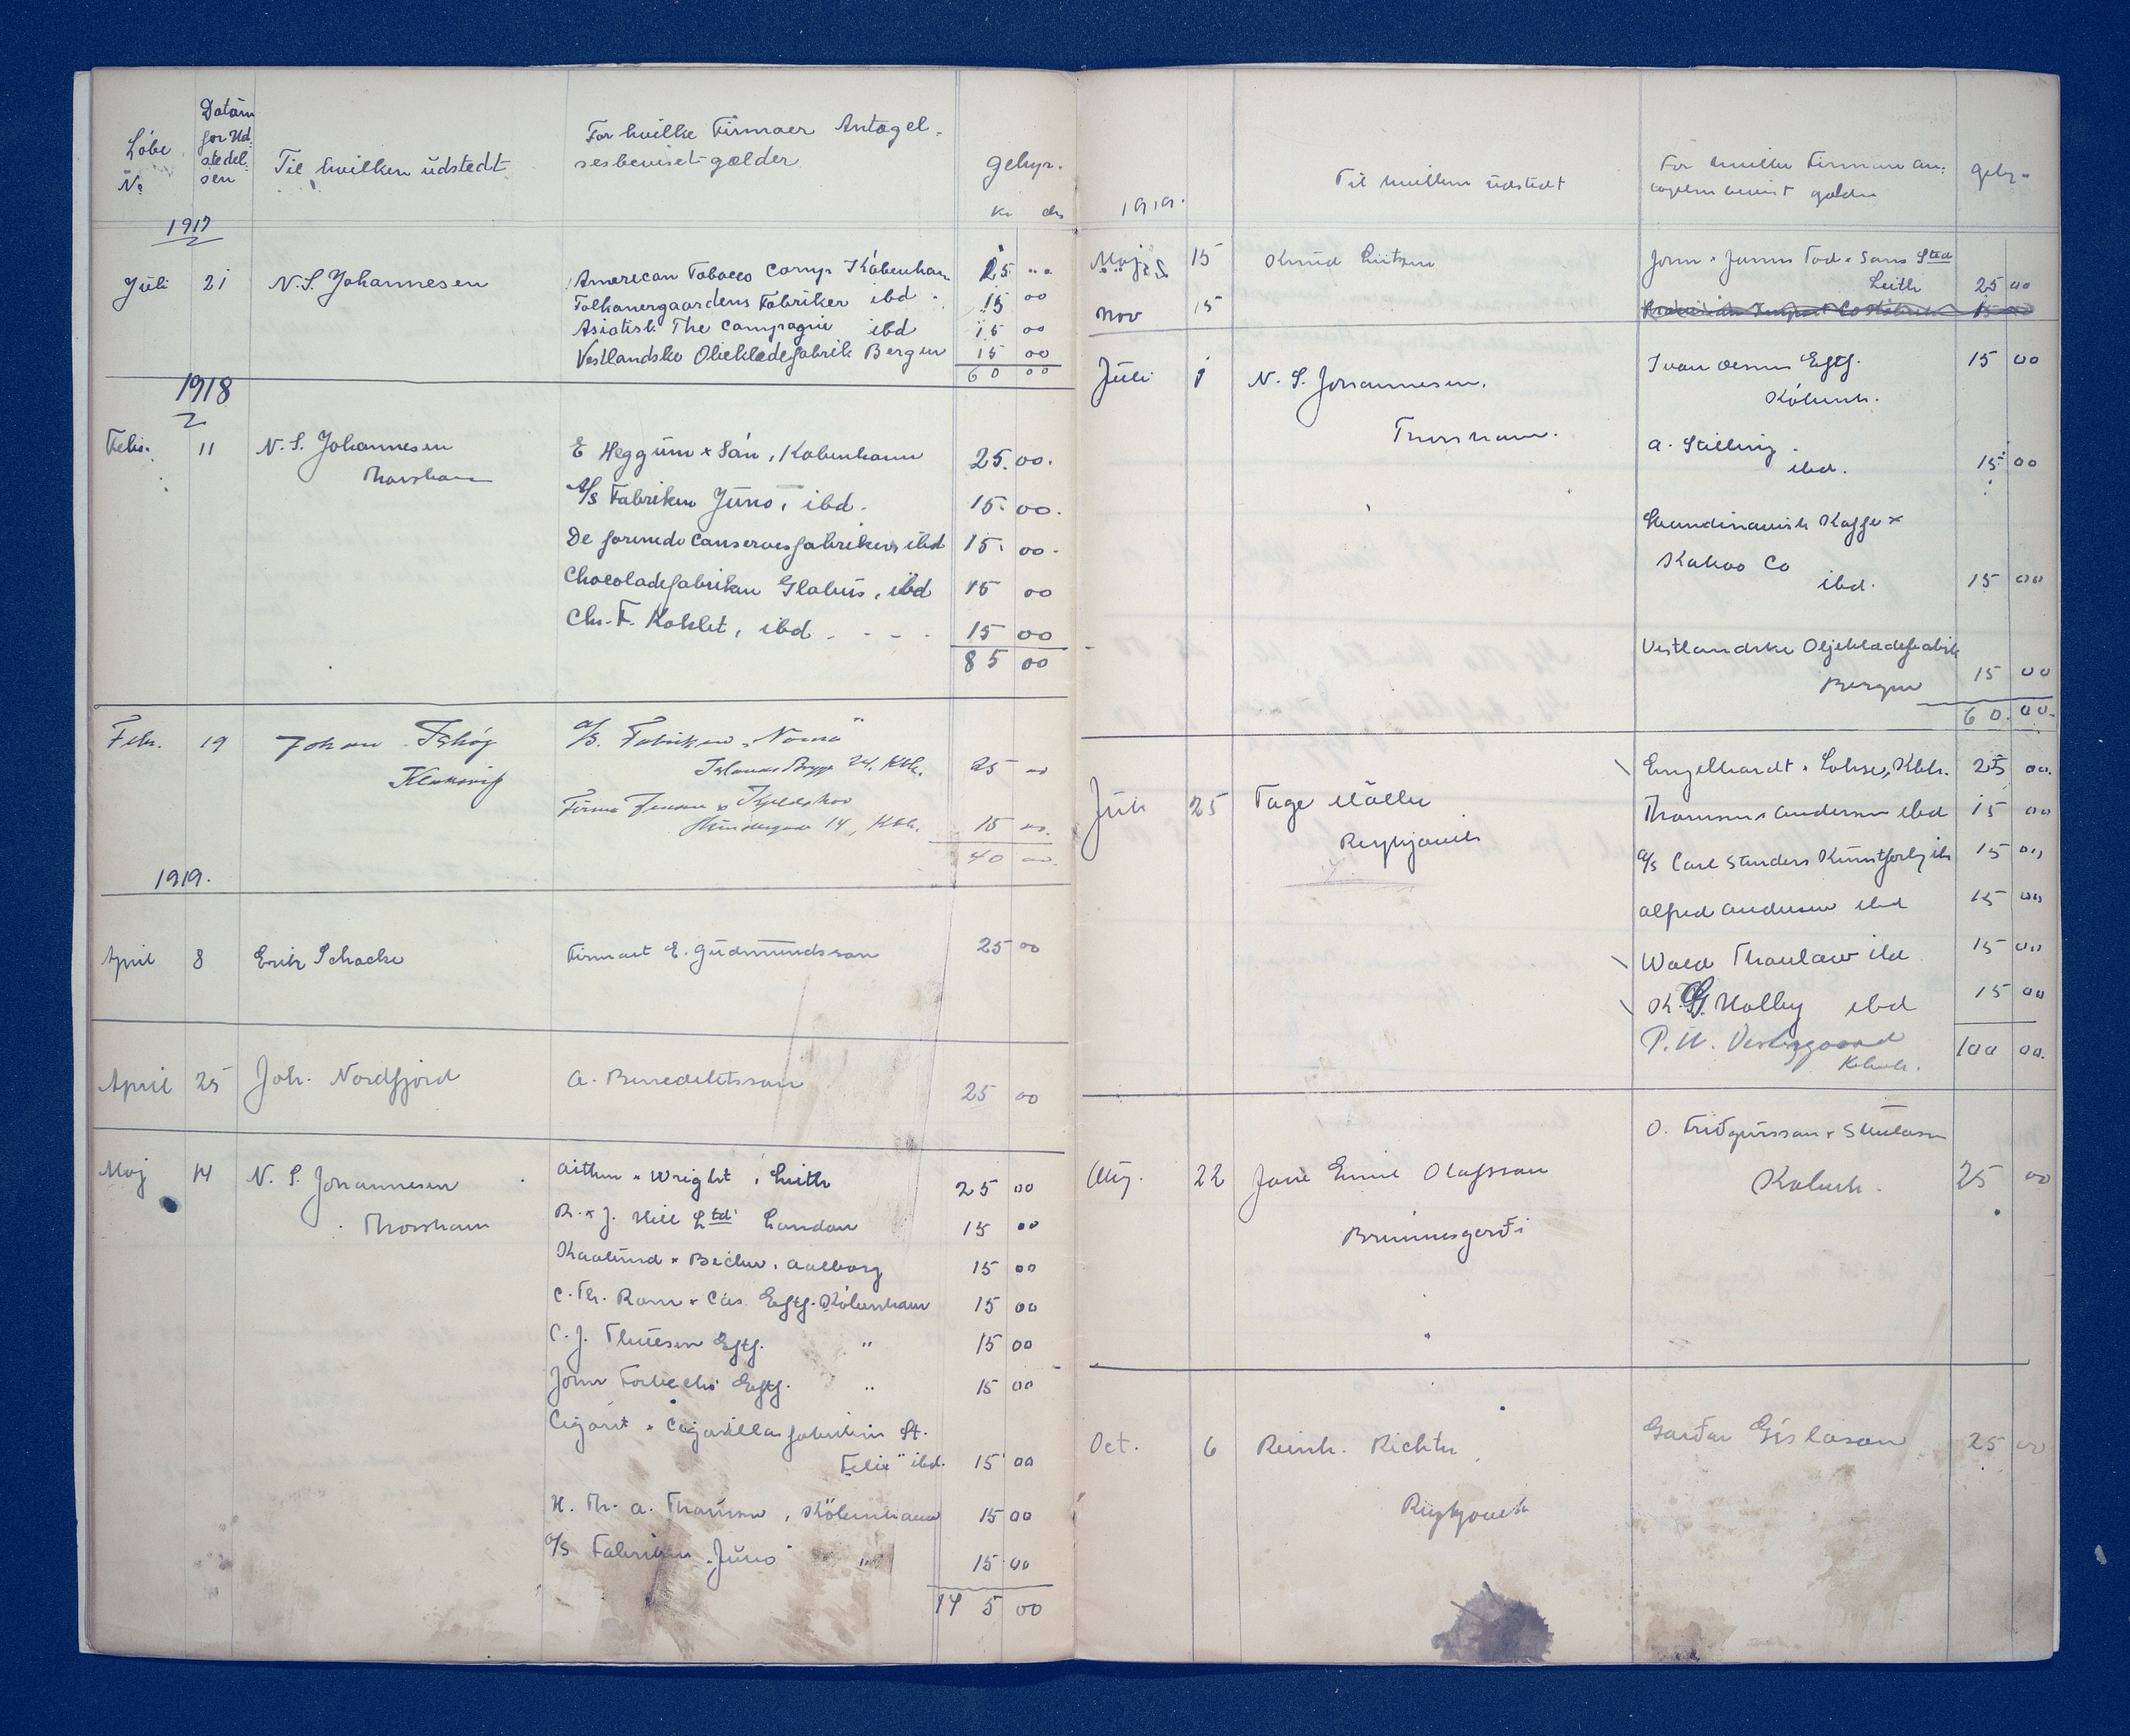 Löbe No
Datum for Ud stedel- sen
Til hvilken udstedt
For hvilke Firmaer Antagel-
sesbeviset gælder
gebyr.
Kr
1917
Juli 21 N. S. Johannesen American Tobacco Comp. København 15 "
Falkonergaardens Fabriker ibd 15 00
Asiatisk The Compagni ibd 15 00
Vestlandske Olieklædefabrik Bergen 15 00
60 00
1918
Febr. 11 N. S. Johannesen E Heggum & Sön, København 25.00.
Thorshavn
A/S Fabriken Juno, ibd. 15. 00.
De forenede Conservesfabrikers ibd 15. 00.
Chocoladefabriken Globus, ibd 15 00
Chr. F. ibd 15 00
85 00
Febr. 19 Johan
A/S. Fabriken
Islands Brygge 24, Kbh. 25 00
Firma
14, Kbh. 15 00.
40 00.
1919.
April 8 Erik Schacke Firmaet E. Gudmundsson 25 00
April 25 Joh. Nordfjord A. Benediktsson 25 00
Maj 14 N. S. Johannesen Aitken & Wright, Leith 25 00
Thorshavn R. & J. Hill Ltd London 15 00
Kaalund & Becker, Aalborg 15 00
C. Th. Rom & Co's Eftf. København 15 00
C. J. Thuesen Eftf. " 15 00
John Eftf. " 15 00
Cigaret & Cigarillosfabriken St.
Felix" ibd. 15 00
H. Th. A. Thomsen, København 15 00
A/S Fabriken "Juno" " 15 00
145 00
1919.
Til hvilken udstedt
For hvilke Firmaer an-
tagelsesbeviset gælder
geby-
Maj 15 Knud John & James Tod & Sons Ltd
Leith 25 00
Nov 15
Juli 1 N. S. Johannesen. Eftf. 15 00
Københ.
Thorshavn. A. Stilling.
ibd. 15 00
Skandinavisk Kaffe &
Kakao Co
ibd. 15 00
Vestlandske Oljeklædefabrik
Bergen 15 00
60.00.
Engelhardt & Lohse, Kbh. 25 00.
Juli 25 Tage Möller Thomsen & Andersen ibd 15 00
Reykjavik
A/S Carl Stenders Kunstforlag ib 15 00
Alfred Andersen ibd 15 00
Wald Thaulow ibd 15 00
Holby ibd 15 00
P. W. Vestergaard
Købh. 100 00.
O. Friðgeirsson & Skúlason
Aug. 22 Jón Emil Olafsson Københ. 25 00
Oct. 6 Reinh. Richter Garðar Gislason 25 00
Reykjavik